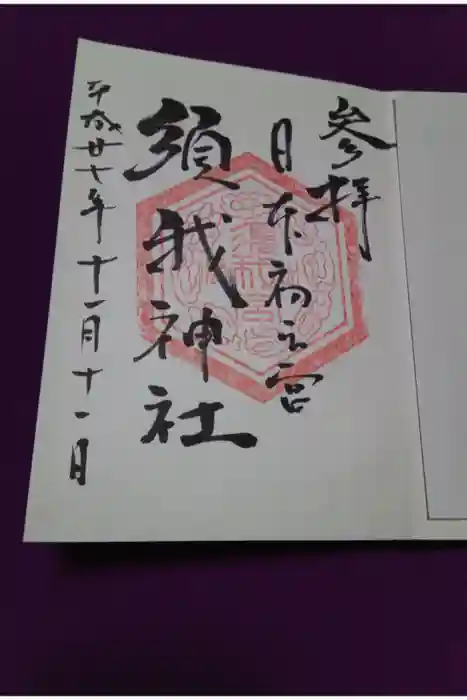 参拝
日本初之宮
須我神社
平成廿七年十一月十一日